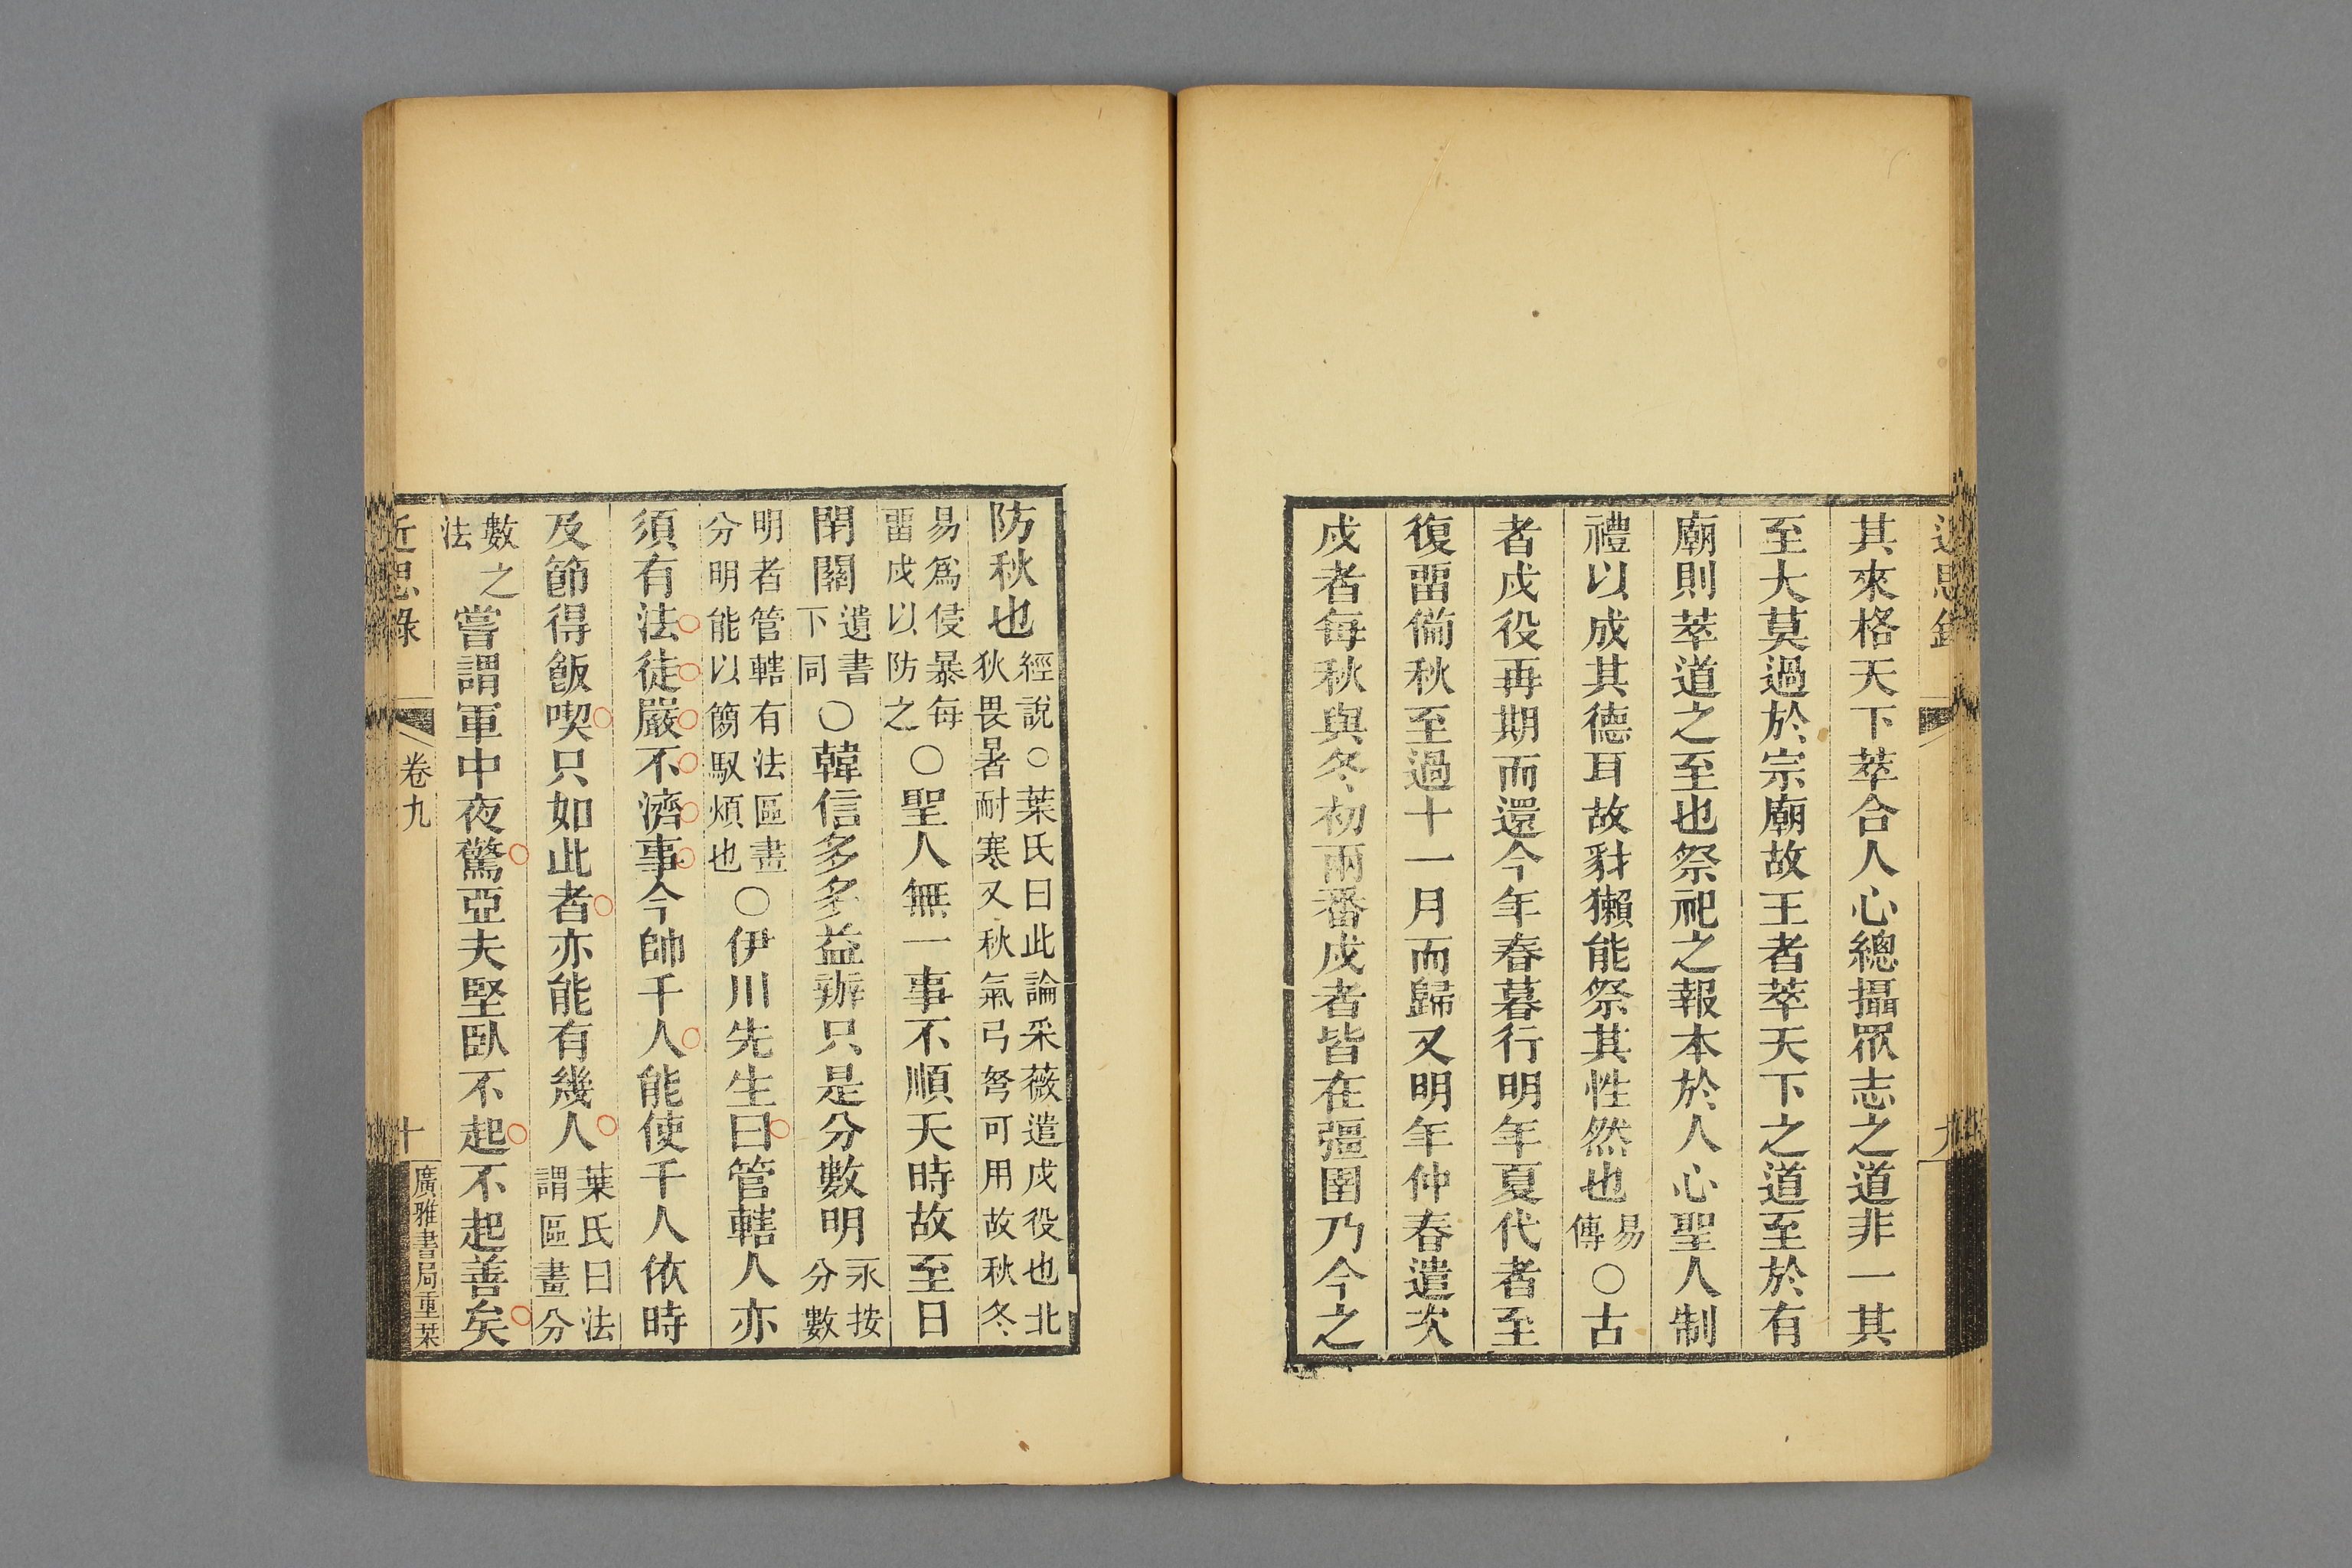 其來格天下萃合人心總攝眾志之道非一其
至大莫過於宗廟故王者萃天下之道至於有
廟則萃道之至也祭祀之報本於人心聖人制
禮以成其德耳故豺獺能祭其性然也易傳○古
者戍役再期而還今年春暮行明年夏代者至
復畱備秋至過十一月而歸又明年仲春遣次
戍者每秋與冬初兩番戍者皆在疆圉乃今之
防秋也經說○葉氏曰此論采薇遣戍役也北狄畏暑耐寒又秋氣弓弩可用故秋冬
易爲侵暴每畱戍以防之○聖人無一事不順天時故至日
閉關遺書下同○韓信多多益辦只是分數明永按分數
明者管轄有法區畫分明能以簡馭煩也○伊川先生曰管轄人亦
須有法徒嚴不濟事今帥千人能使千人依時
及節得飯喫只如此者亦能有幾人葉氏曰法謂區畫分
數之法嘗謂軍中夜驚亞夫堅臥不起不起善矣
近思錄
卷九
十
廣雅書局重栞